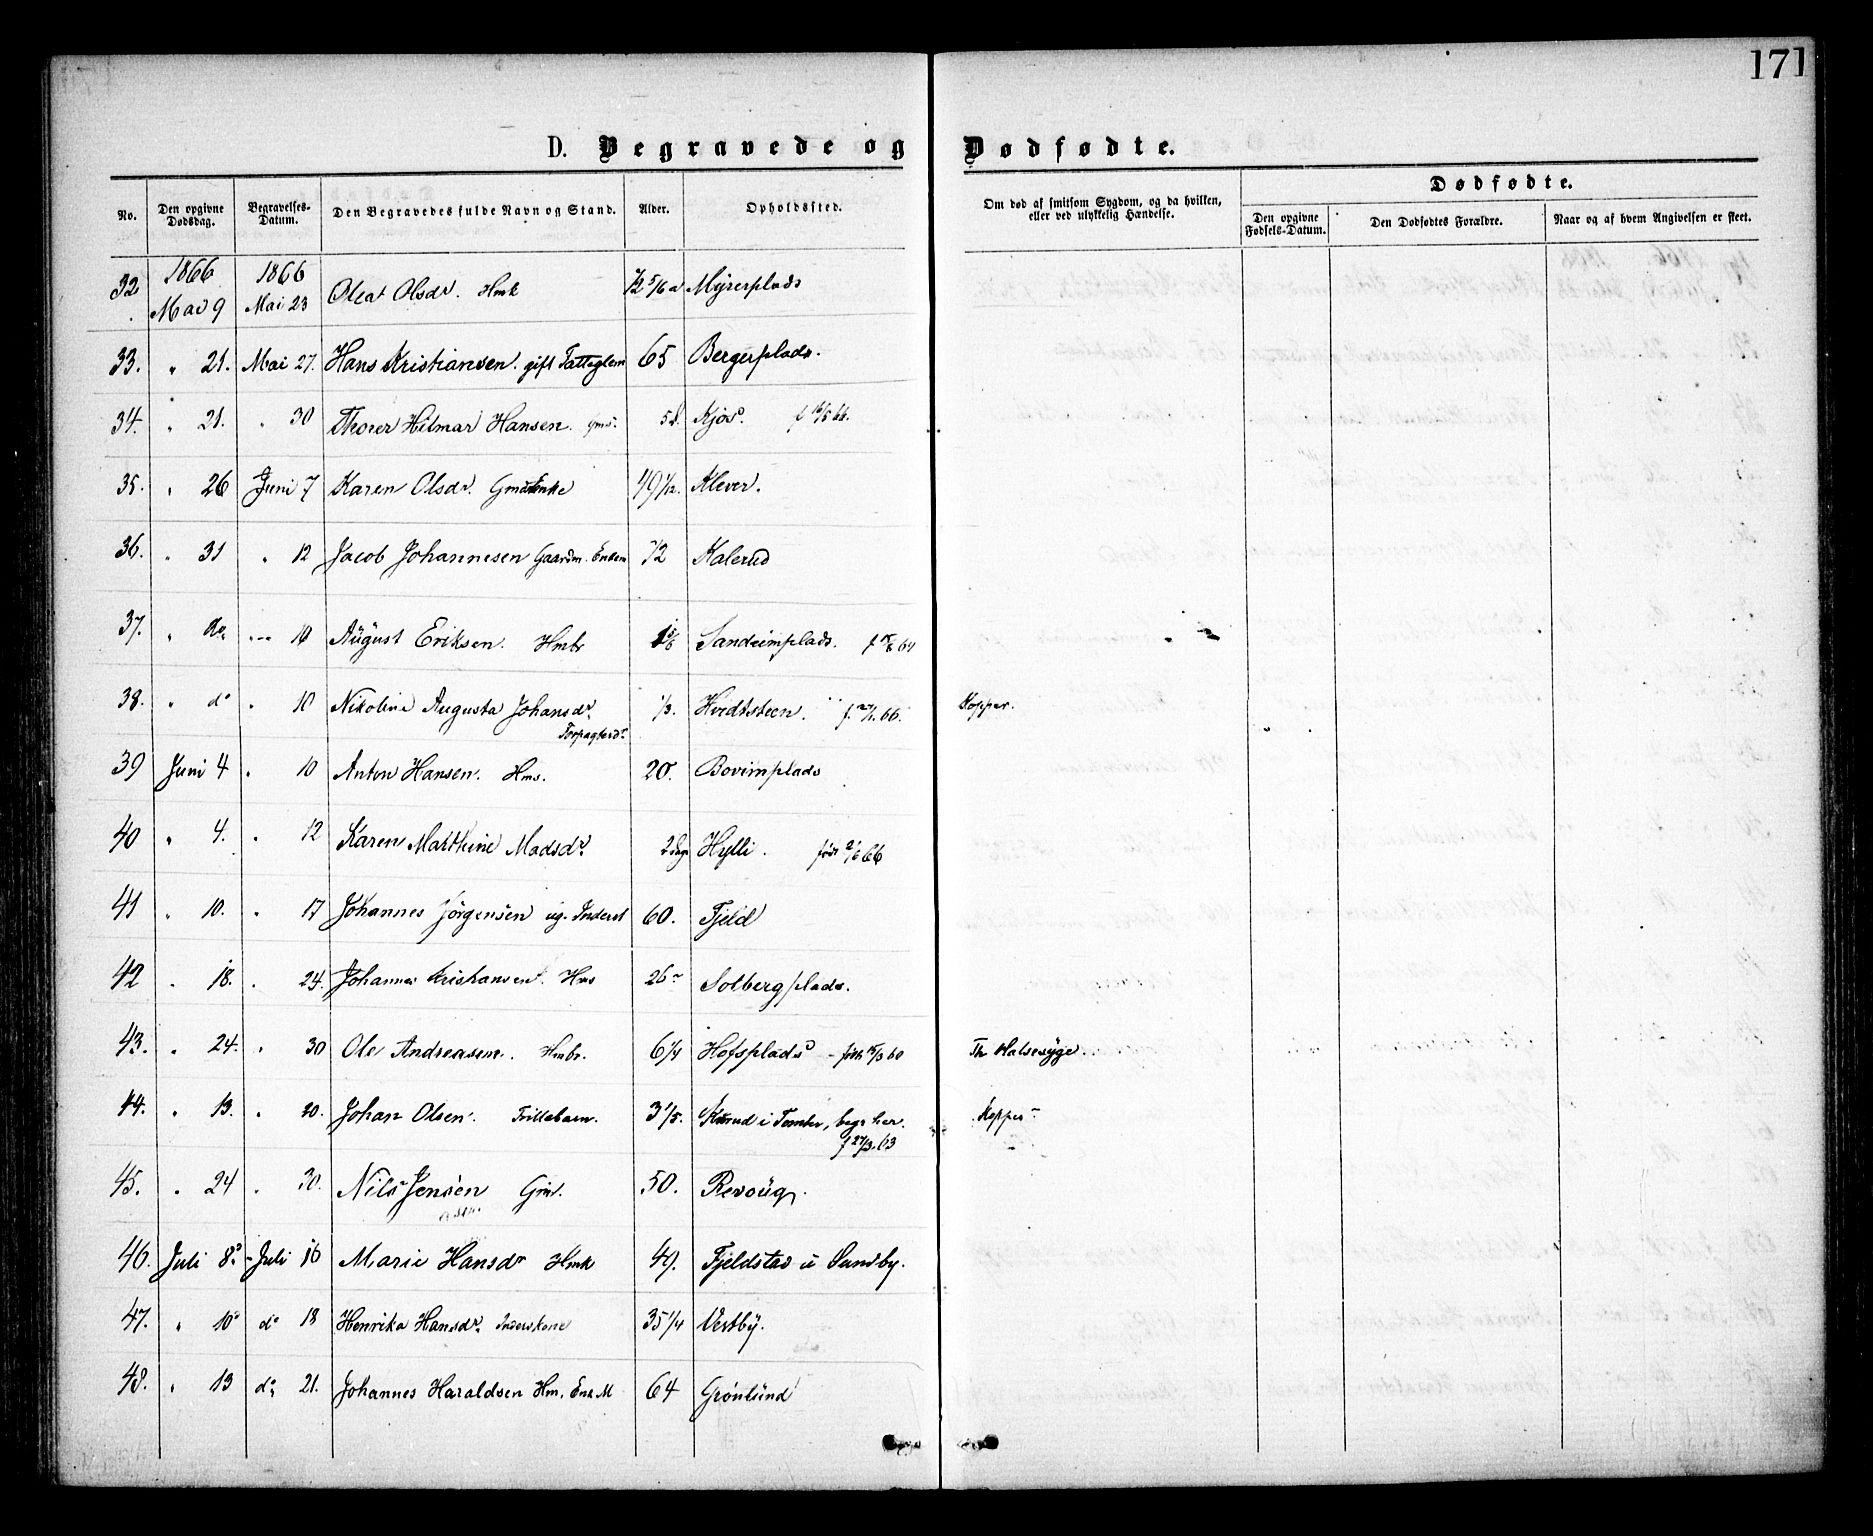 171
D. Begravede og Dødfødte.
No. Den opgivne Dødsdag. Begravelses-Datum. Den Begravedes fulde Navn og Stand. Alder. Opholdssted. Om død af smitsom Sygdom, og da hvilken, eller ved ulykkelig Hændelse. Dødfødte. Den opgivne Fødsels-Datum. Den Dødfødtes Forældre. Naar og af hvem Angivelsen er skeet.
1866 1866
32 Mai 9 Mai 23 Olea Olsdr. Hmk Myrerplads
33. " 21. Mai 27. Hans Kristiansen. gift Fattiglem 65 Bergerplads.
34. " 21. " 30 Thorer Hilmar Hansen. Gms. 5 d. Kjøs.
35. " 26 Juni 7 Karen Olsdr. 49 1/2. Klever.
36. " 31 " 12 Jacob Johannesen Gaardm. Enkem 72 Kalerud
37. " do " 10 August Eriksen. Hmbr 1 5/6 Sandeimplads.
38. " do " 10 Nikoline Augusta Johansdr. 1/3. Hvidtsteen. Kopper.
Forpagterdr
39 Juni 4 " 10 Anton Hansen. Hms. 20. Bovimplads
40 " 4. " 12 Karen Mathine Madsdr. 2 Dage Hylli. født 2/6 66
41 " 10. " 17 Johannes Jörgensen ug. Inderst 60. Fjeld
42 " 18. " 24. Johannes Kristiansen. Hms 26 Solbergplads.
43. " 24. " 30 Ole Andreasen. Hmbr. 6 1/4 Hofsplads født 15/3 60 Halsesyge.
44. " 13. " 20. Johan Olsen. Trillebarn. 3 1/5. i Tomter, begr her. Kopper
f 27/3.63
45. " 24 " 30. Nils Jensen Gm. 50. Revoug.
46. Juli 8. Juli 16 Marie Hansdr Hmk 49. Fjeldstad u Sundby.
47. " 10 do 18 Henrika Hansdr. Inderskone 35 1/4 Vestby.
48. " 13 do 21. Johannes Haraldsen Hm. Enk.M 64 Grønlund